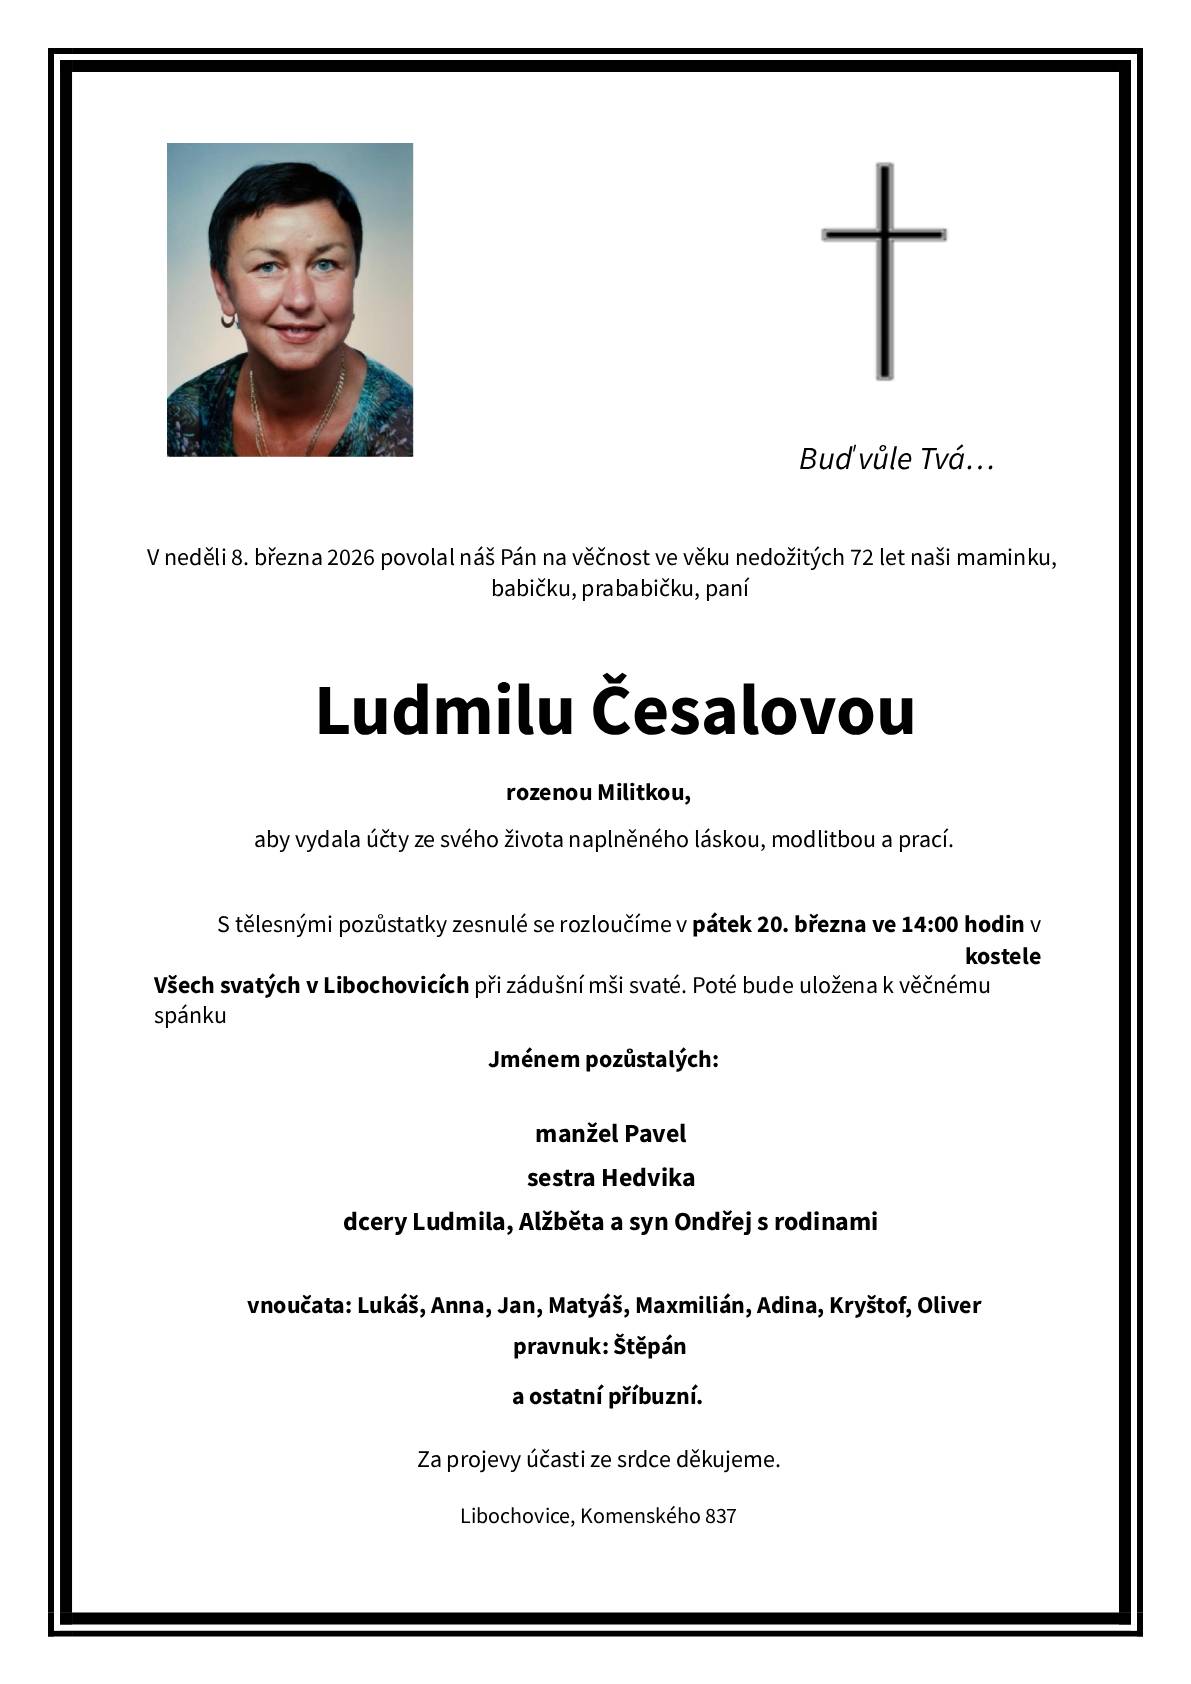 Buď vůle Tvá…
V neděli 8. března 2026 povolal náš Pán na věčnost ve věku nedožitých 72 let naši maminku,
babičku, prababičku, paní
Ludmilu Česalovou
rozenou Militkou,
aby vydala účty ze svého života naplněného láskou, modlitbou a prací.
S tělesnými pozůstatky zesnulé se rozloučíme v pátek 20. března ve 14:00 hodin v
kostele
Všech svatých v Libochovicích při zádušní mši svaté. Poté bude uložena k věčnému
spánku
Jménem pozůstalých:
manžel Pavel
sestra Hedvika
dcery Ludmila, Alžběta a syn Ondřej s rodinami
vnoučata: Lukáš, Anna, Jan, Matyáš, Maxmilián, Adina, Kryštof, Oliver
pravnuk: Štěpán
a ostatní příbuzní.
Za projevy účasti ze srdce děkujeme.
Libochovice, Komenského 837